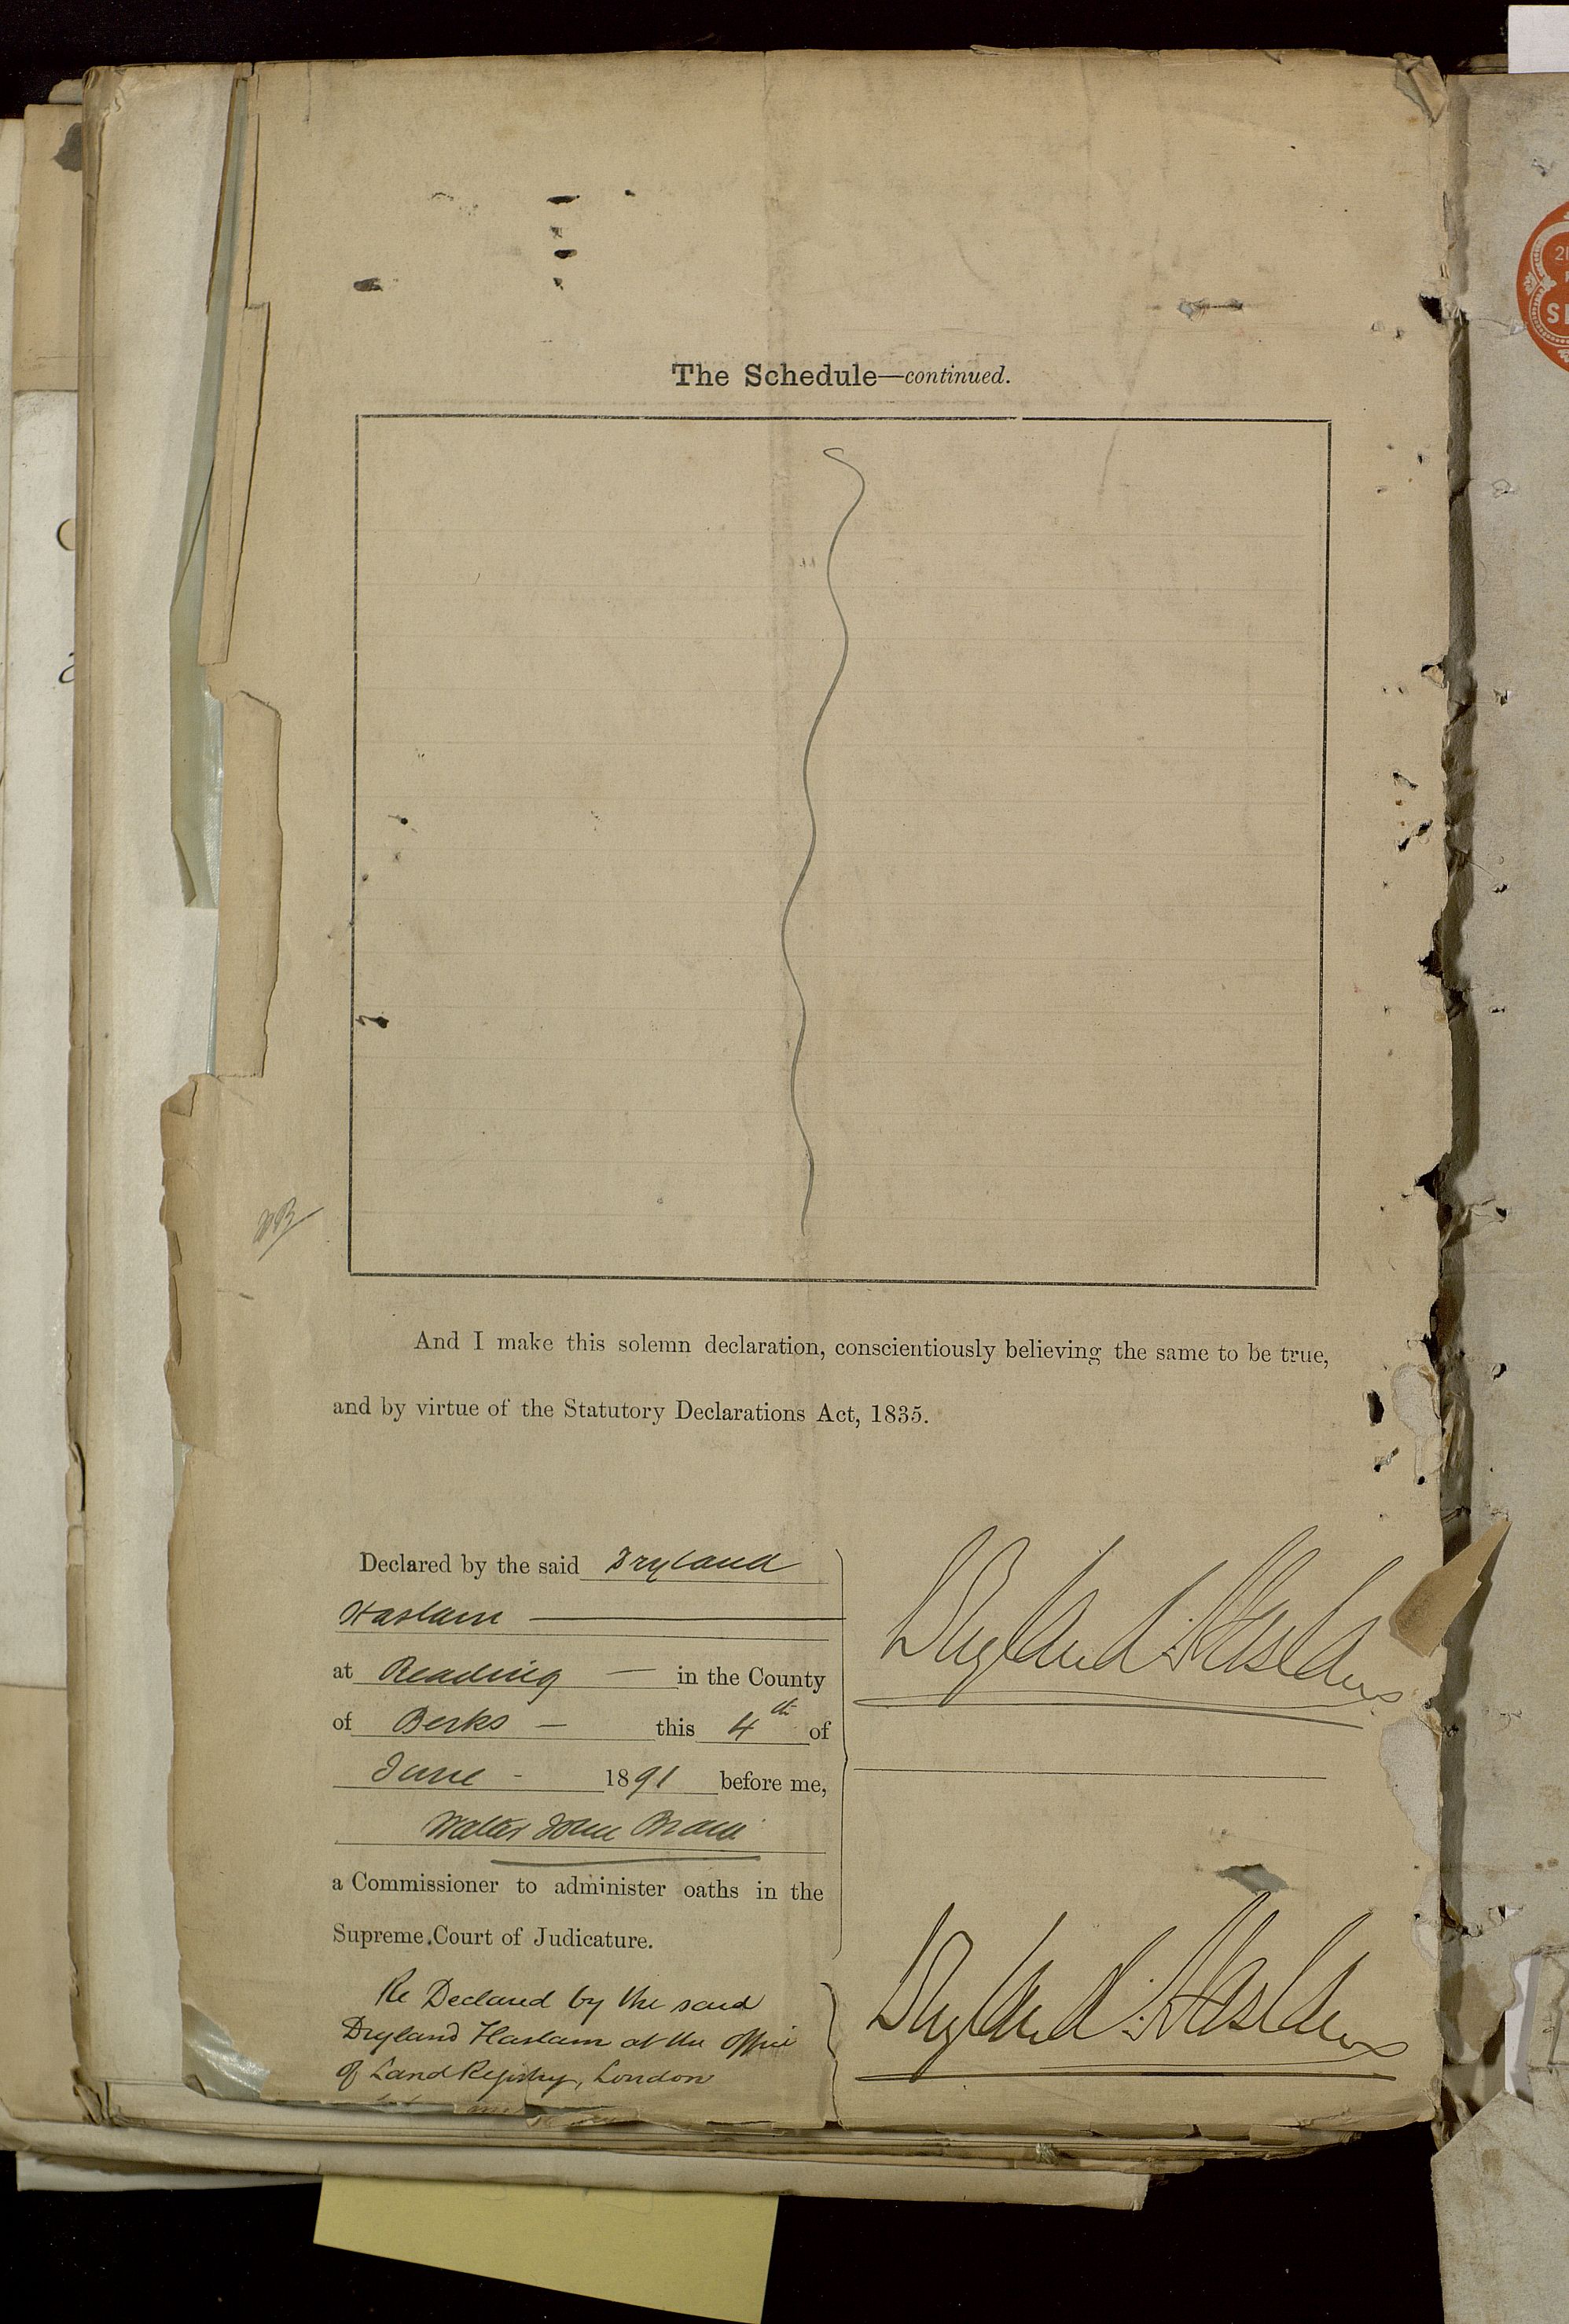 The Schedule—continued.
And I make this solemn declaration, conscientiously believing the same to be true,
and by virtue of the Statutory Declarations Act, 1835.
Declared by the said Dryland
Haslam
at Reading — in the County
of Berks — this 4th of
June - 1891 before me,
Walter John
a Commissioner to administer oaths in the
Supreme Court of Judicature.
Dryland Haslam
Re Declared by the said
Dryland Haslam at the Office
of Land Registry, London
Dryland Haslam